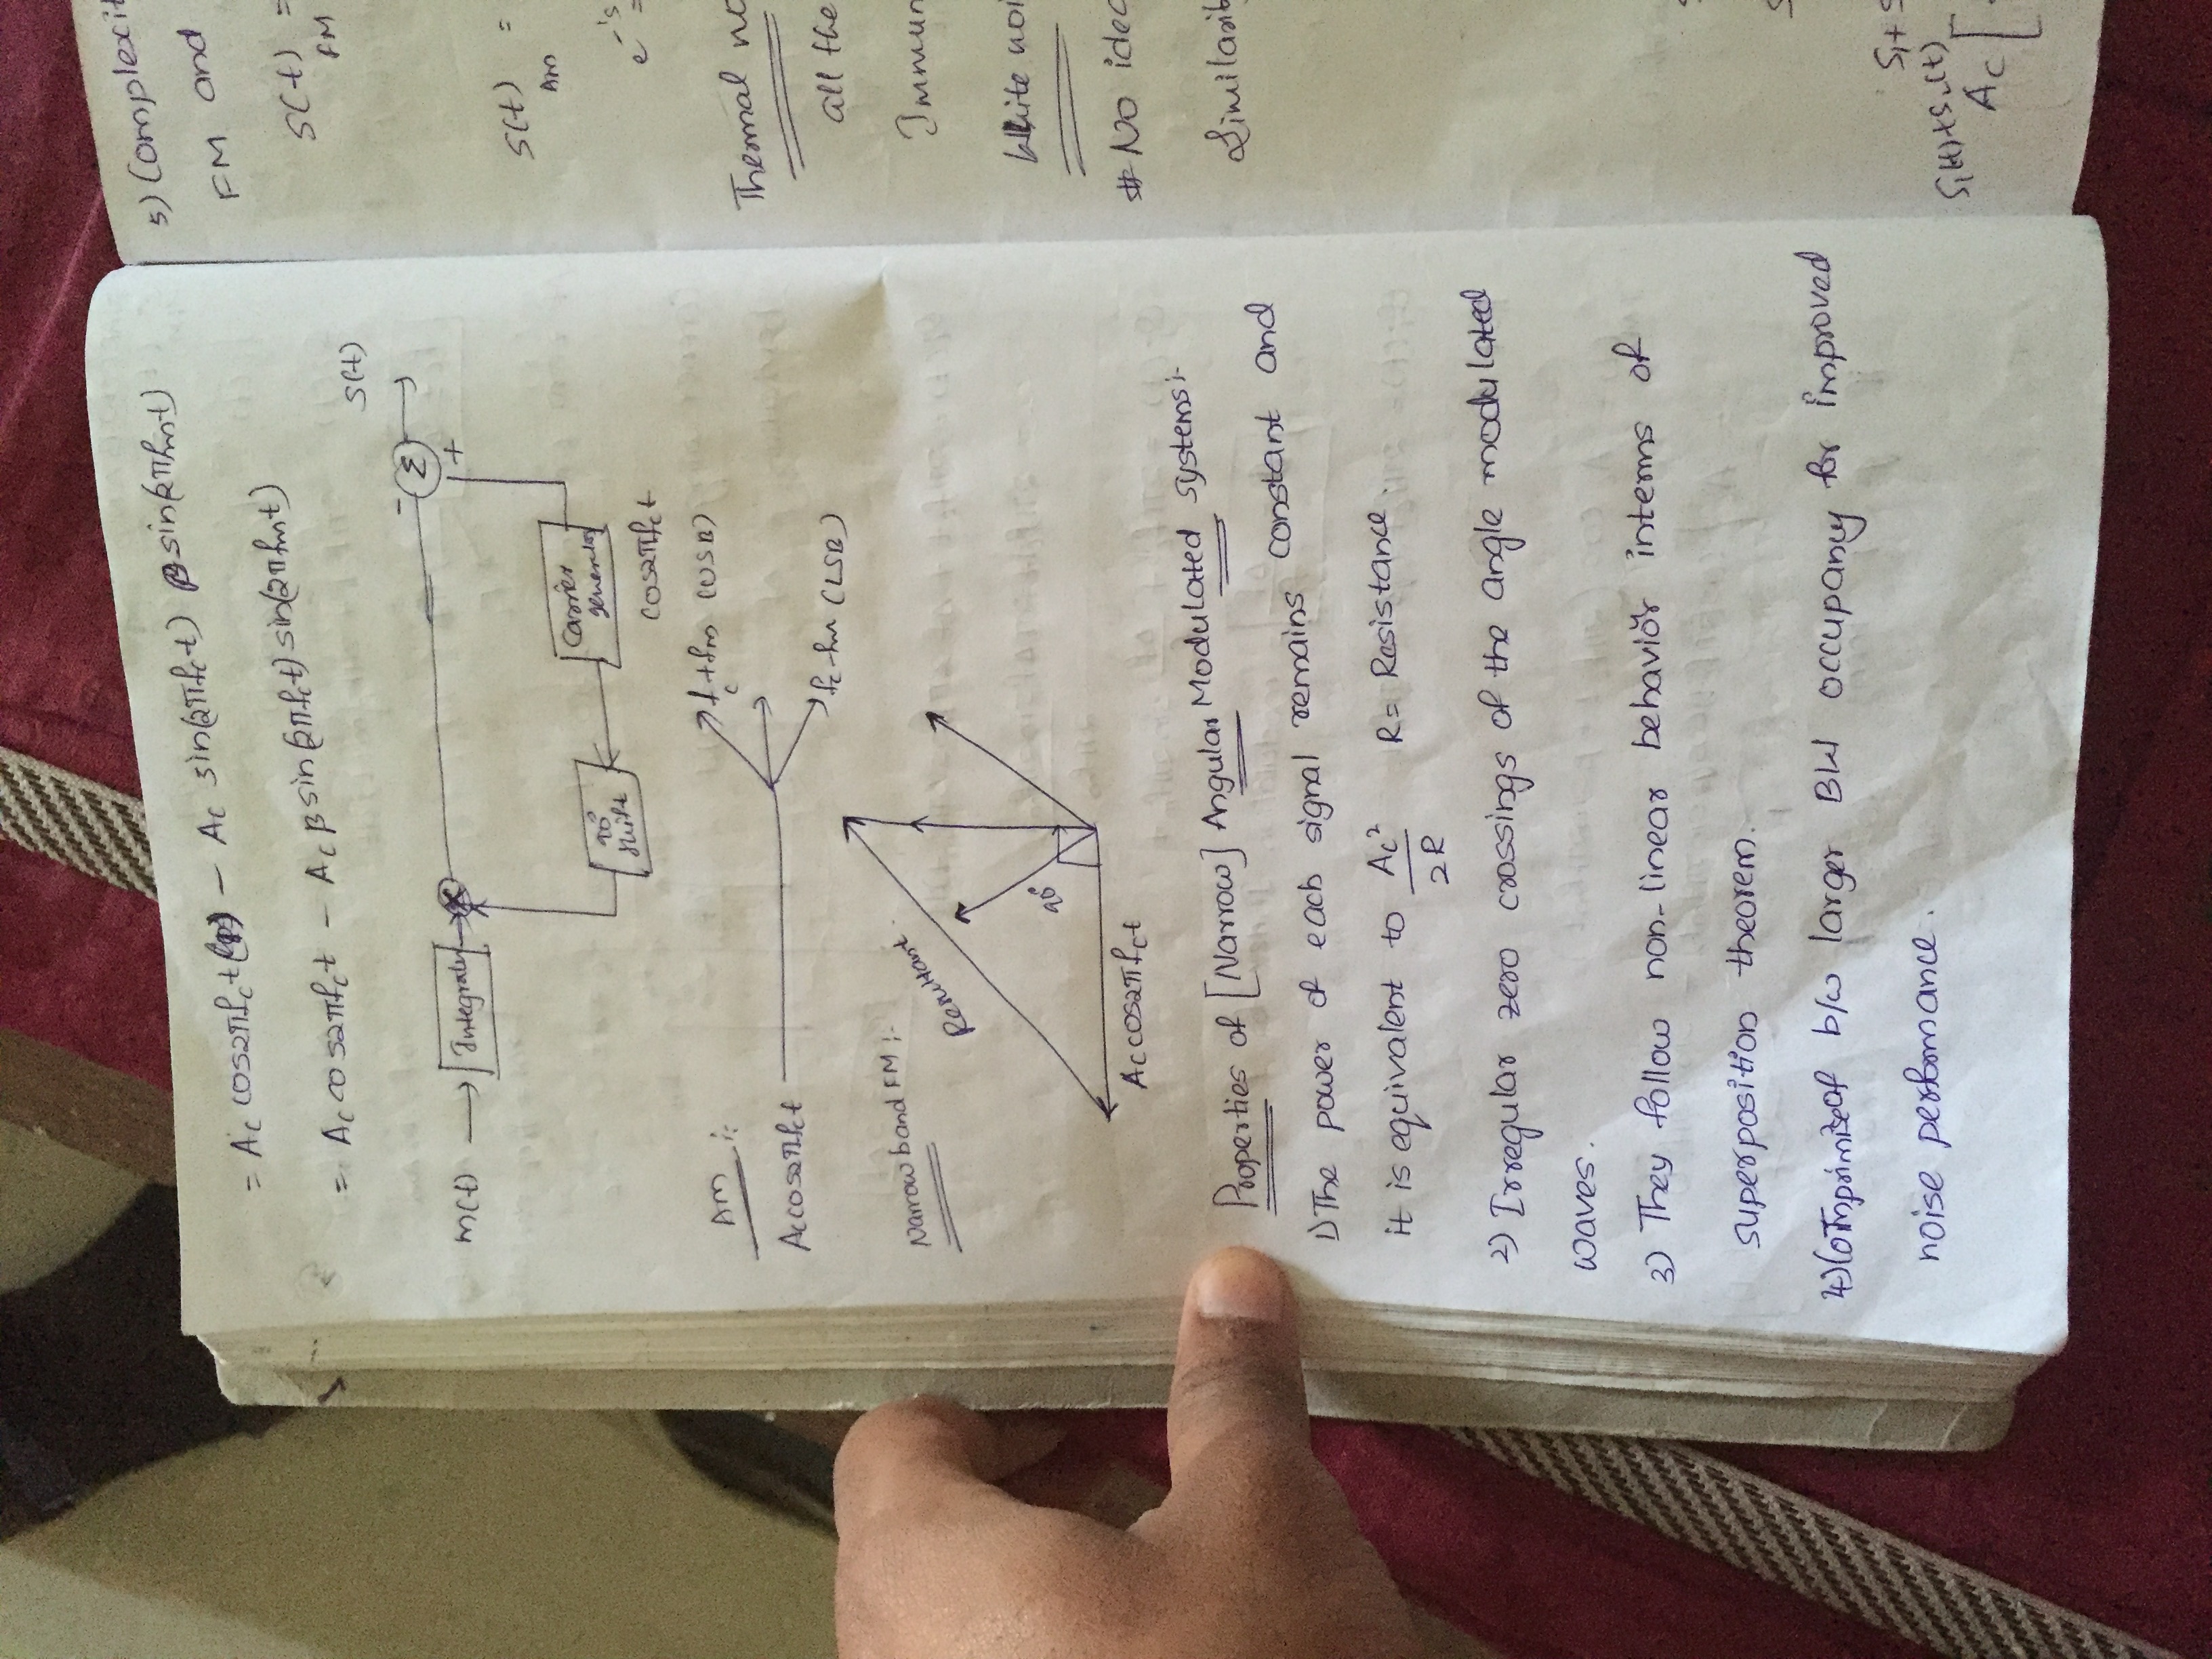 = Ac cos2πfct (1) - Ac sin(2πfct) βsin(2πfmt)
= Ac cos2πfct - Ac β sin(2πfct) sin(2πfmt)
S(t)
- Σ
m(t) Integrator X
+
Carrier generator
90° shift
cos2πfct
AM :-
fc+fm (USB)
Accos2πfct
fc-fm (LSB)
Narrowband FM :-
Resultant
90°
Accos2πfct
Properties of [Narrow] Angular Modulated systems:-
1) The power of each signal remains constant and
it is equivalent to Ac²/2R R = Resistance.
2) Irregular zero crossings of the angle modulated
waves.
3) They follow non-linear behavior interms of
superposition theorem.
4) of b/w larger BW occupancy for improved
noise performance.
5) Complexit
FM and
S(t) =
FM
S(t) =
AM
Thermal no
all the
Immun
White noi
# No idea
Similarit
S1 + S
S1(t)+S2(t)
Ac [